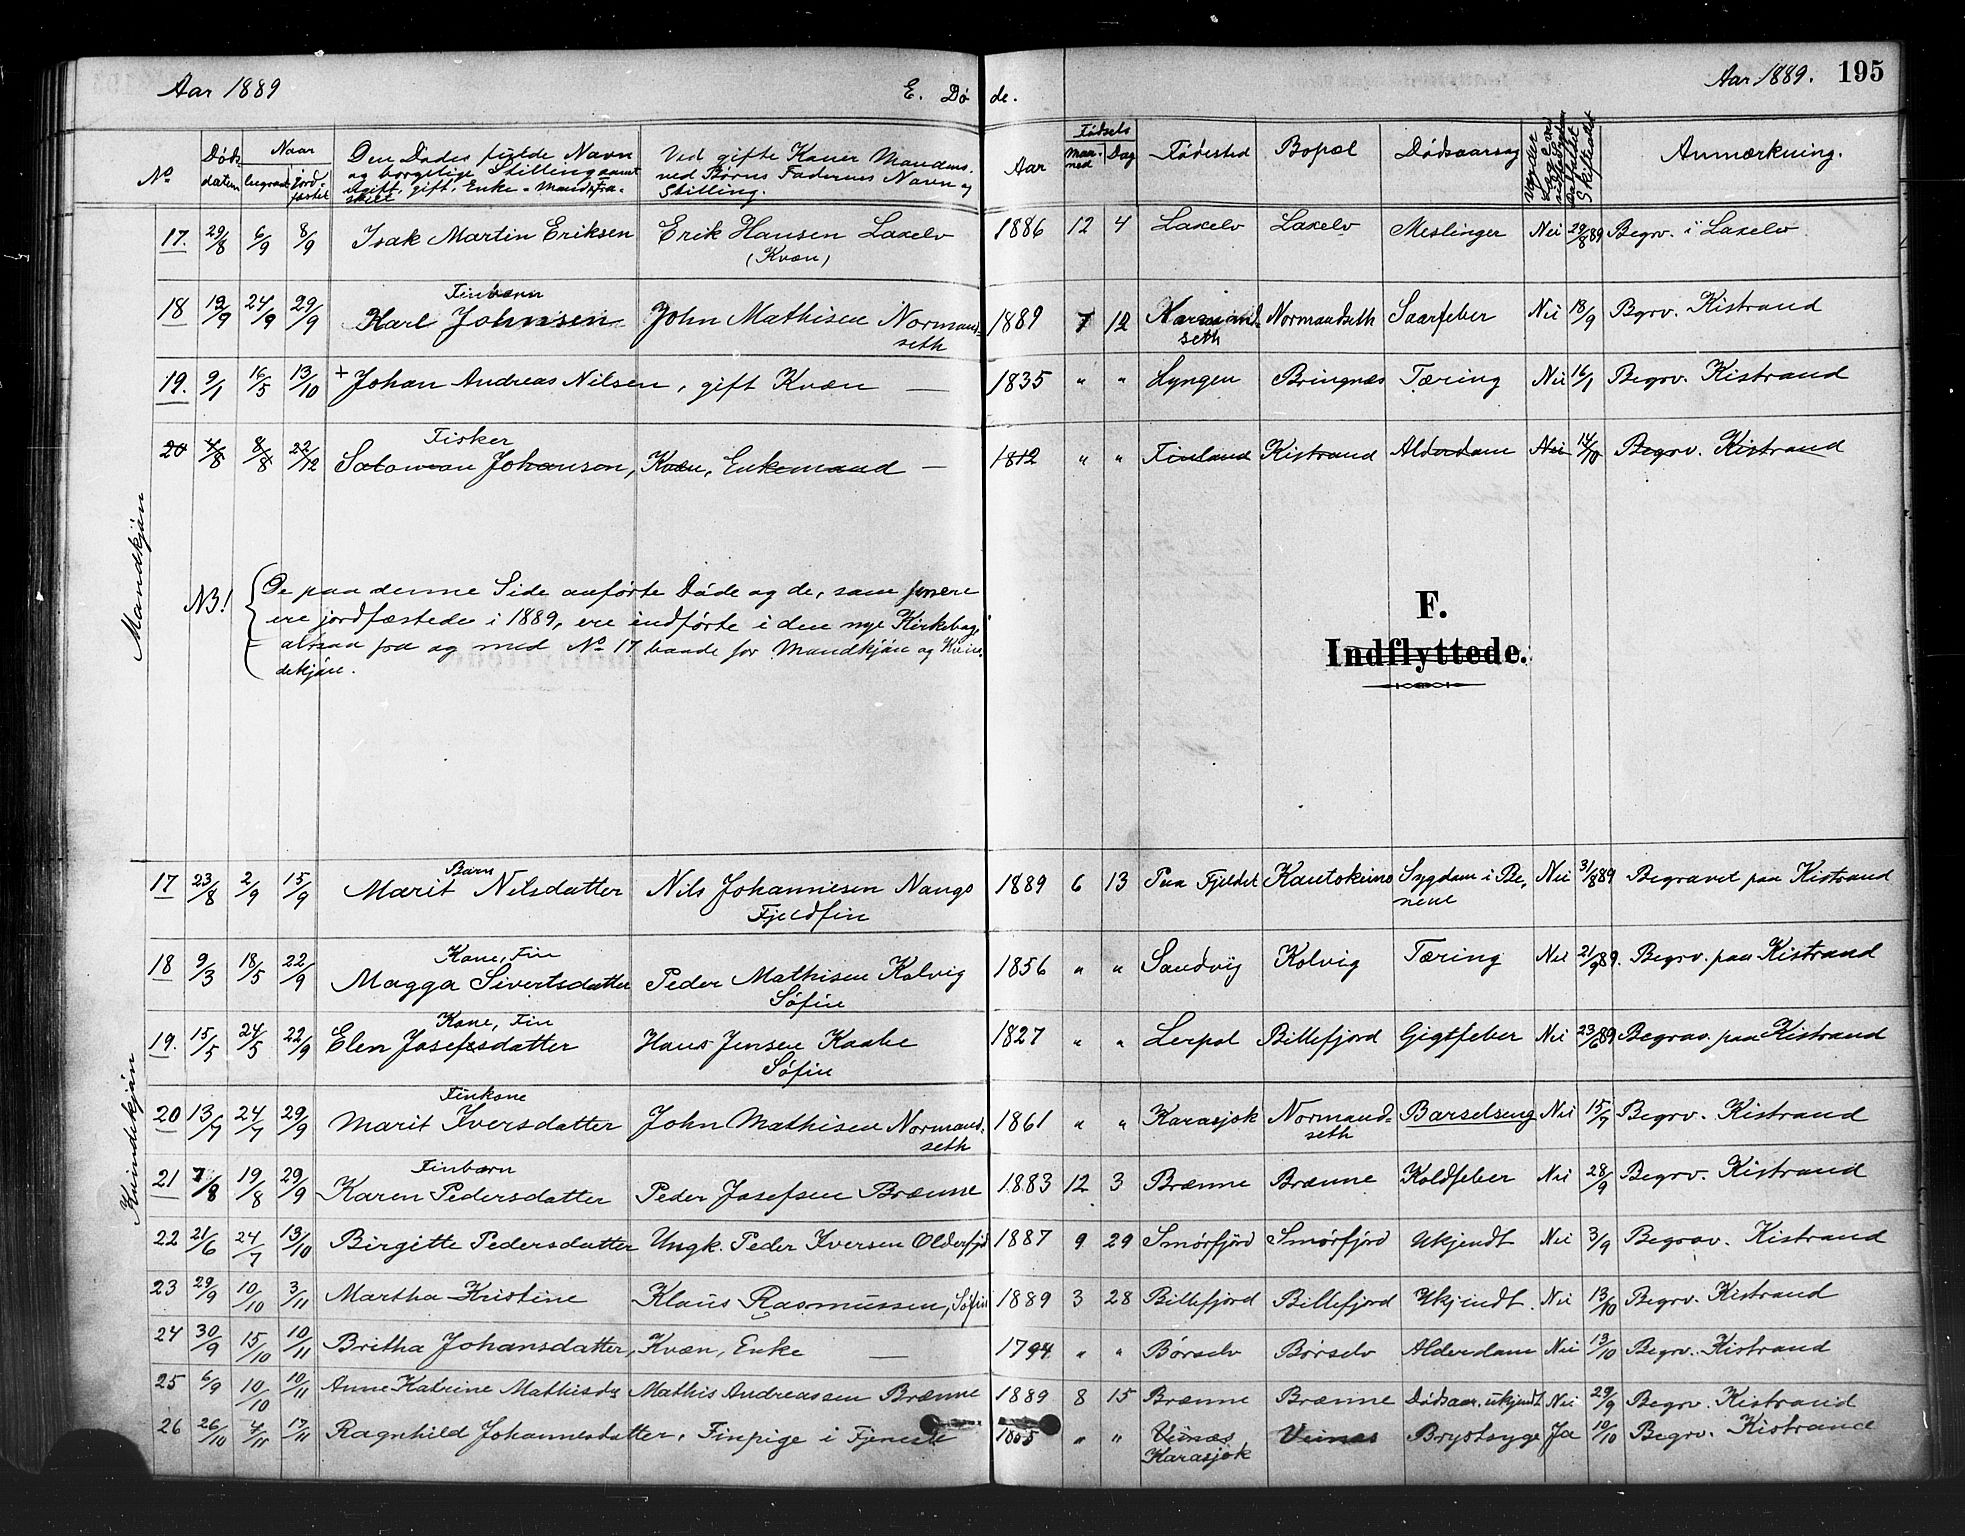 Aar 1889 E. Dø de. Aar 1889. 195
No Døds datum Naar begravet jordfæstet Den Dødes fulde Navn og borgelige Stilling samt ugift, gift, Enke- Mand, fraskilt Ved gifte Koner Mandens, ved Børns Faderens Navn og Stilling. Aar Fødsels Maaned Dag Fødested Bopæl Dødsaarsag Anmærkning.
Mandkjøn
17. 29/8 6/9 8/9 Isak Martin Eriksen Erik Hansen Laxelv (Kvæn) 1886 12 4 Laxelv Laxelv Meslinger Nei 29/8 89 Begrv. i Laxelv
18 19/9 24/9 29/9 Finbarn Karl Johnsen John Mathisen Normandseth 1889 7 12 Normandseth Normandseth Saarfeber Nei 18/9 Bgrv. Kistrand
19. 9/1 16/5 13/10 + Johan Andreas Nilsen, gift Kvæn — 1835 " " Lyngen Bringnæs Tæring Nei 16/1 Begrv. Kistrand
20 4/8 8/8 22/12 Fisker Salomon Johansen, Kvæn, Enkemand — 1812 " " Finland Kistrand Alderdom Nei 14/10 Begrv. Kistrand
NB! De paa denne Side anførte Døde og de, som senere
ere jordfæstede i 1889, ere indførte i den nye Kirkebog,
altsaa fra og med No 17 baade for Mandkjøn og Kvin-
dekjøn.
F.
Indflyttede.
Kvindekjøn
17 23/8 2/9 15/9 Barn Marit Nilsdatter Nils Johannesen Nango Fjeldfin 1889 6 13 Paa Fjeldet Kautokeino Sygdom i Benene Nei 31/8 89 Begravet paa Kistrand
18 9/3 18/5 22/9 Kone, Fin Magga Sivertsdatter Peder Mathisen Kolvig Søfin 1856 " " Sandvig Kolvig Tæring Nei 21/9 89. Begrv. paa Kistrand
19. 15/5 24/5 22/9 Kone, Fin Elen Josefsdatter Hans Jensen Kaabe Søfin 1827 " " Lerpol Billefjord Gigtfeber Nei 23/6 89 Begrav. paa Kistrand
20 13/7 24/7 29/9 Finkone Marit Iversdatter John Mathisen Normandseth 1861 " " Karasjok Normandseth Barselseng Nei 15/7 Begrv. Kistrand
21 7/8 19/8 29/9 Finbarn Karen Pedersdatter Peder Josefsen Brænne 1883 12 3 Brænne Brænne Koldfeber Nei 28/9 Begrv. Kistrand
22 21/6 24/7 13/10 Birgitte Pedersdatter Ungk. Peder Iversen Olderfjd 1887 9 29 Smørfjord Smørfjord Ukjendt Nei 3/9 Begrav. Kistrand
23 29/9 10/10 3/11 Martha Kristine Klaus Rasmussen, Søfin 1889 3 28 Billefjord Billefjord Ukjendt. Nei 13/10 Begrv. Kistrand
24 30/9 15/10 10/11 Britha Johansdatter, Kvæn, Enke — 1794 " " Børselv Børselv Alderdom Nei 13/10 Begrv. Kistrand
25 6/9 10/10 10/11 Anne Katrine Mathisdr Mathis Andreassen Brænne 1889 8 15 Brænne Brænne Dødsaar. ukjendt Nei 29/9 Begrv. Kistrand
26 26/10 4/11 17/11 Ragnhild Johannesdatter, Finpige i Tjeneste " " Veinæs Karasjok Veinæs Brystsyge Ja 10/10 Begrv. Kistrand